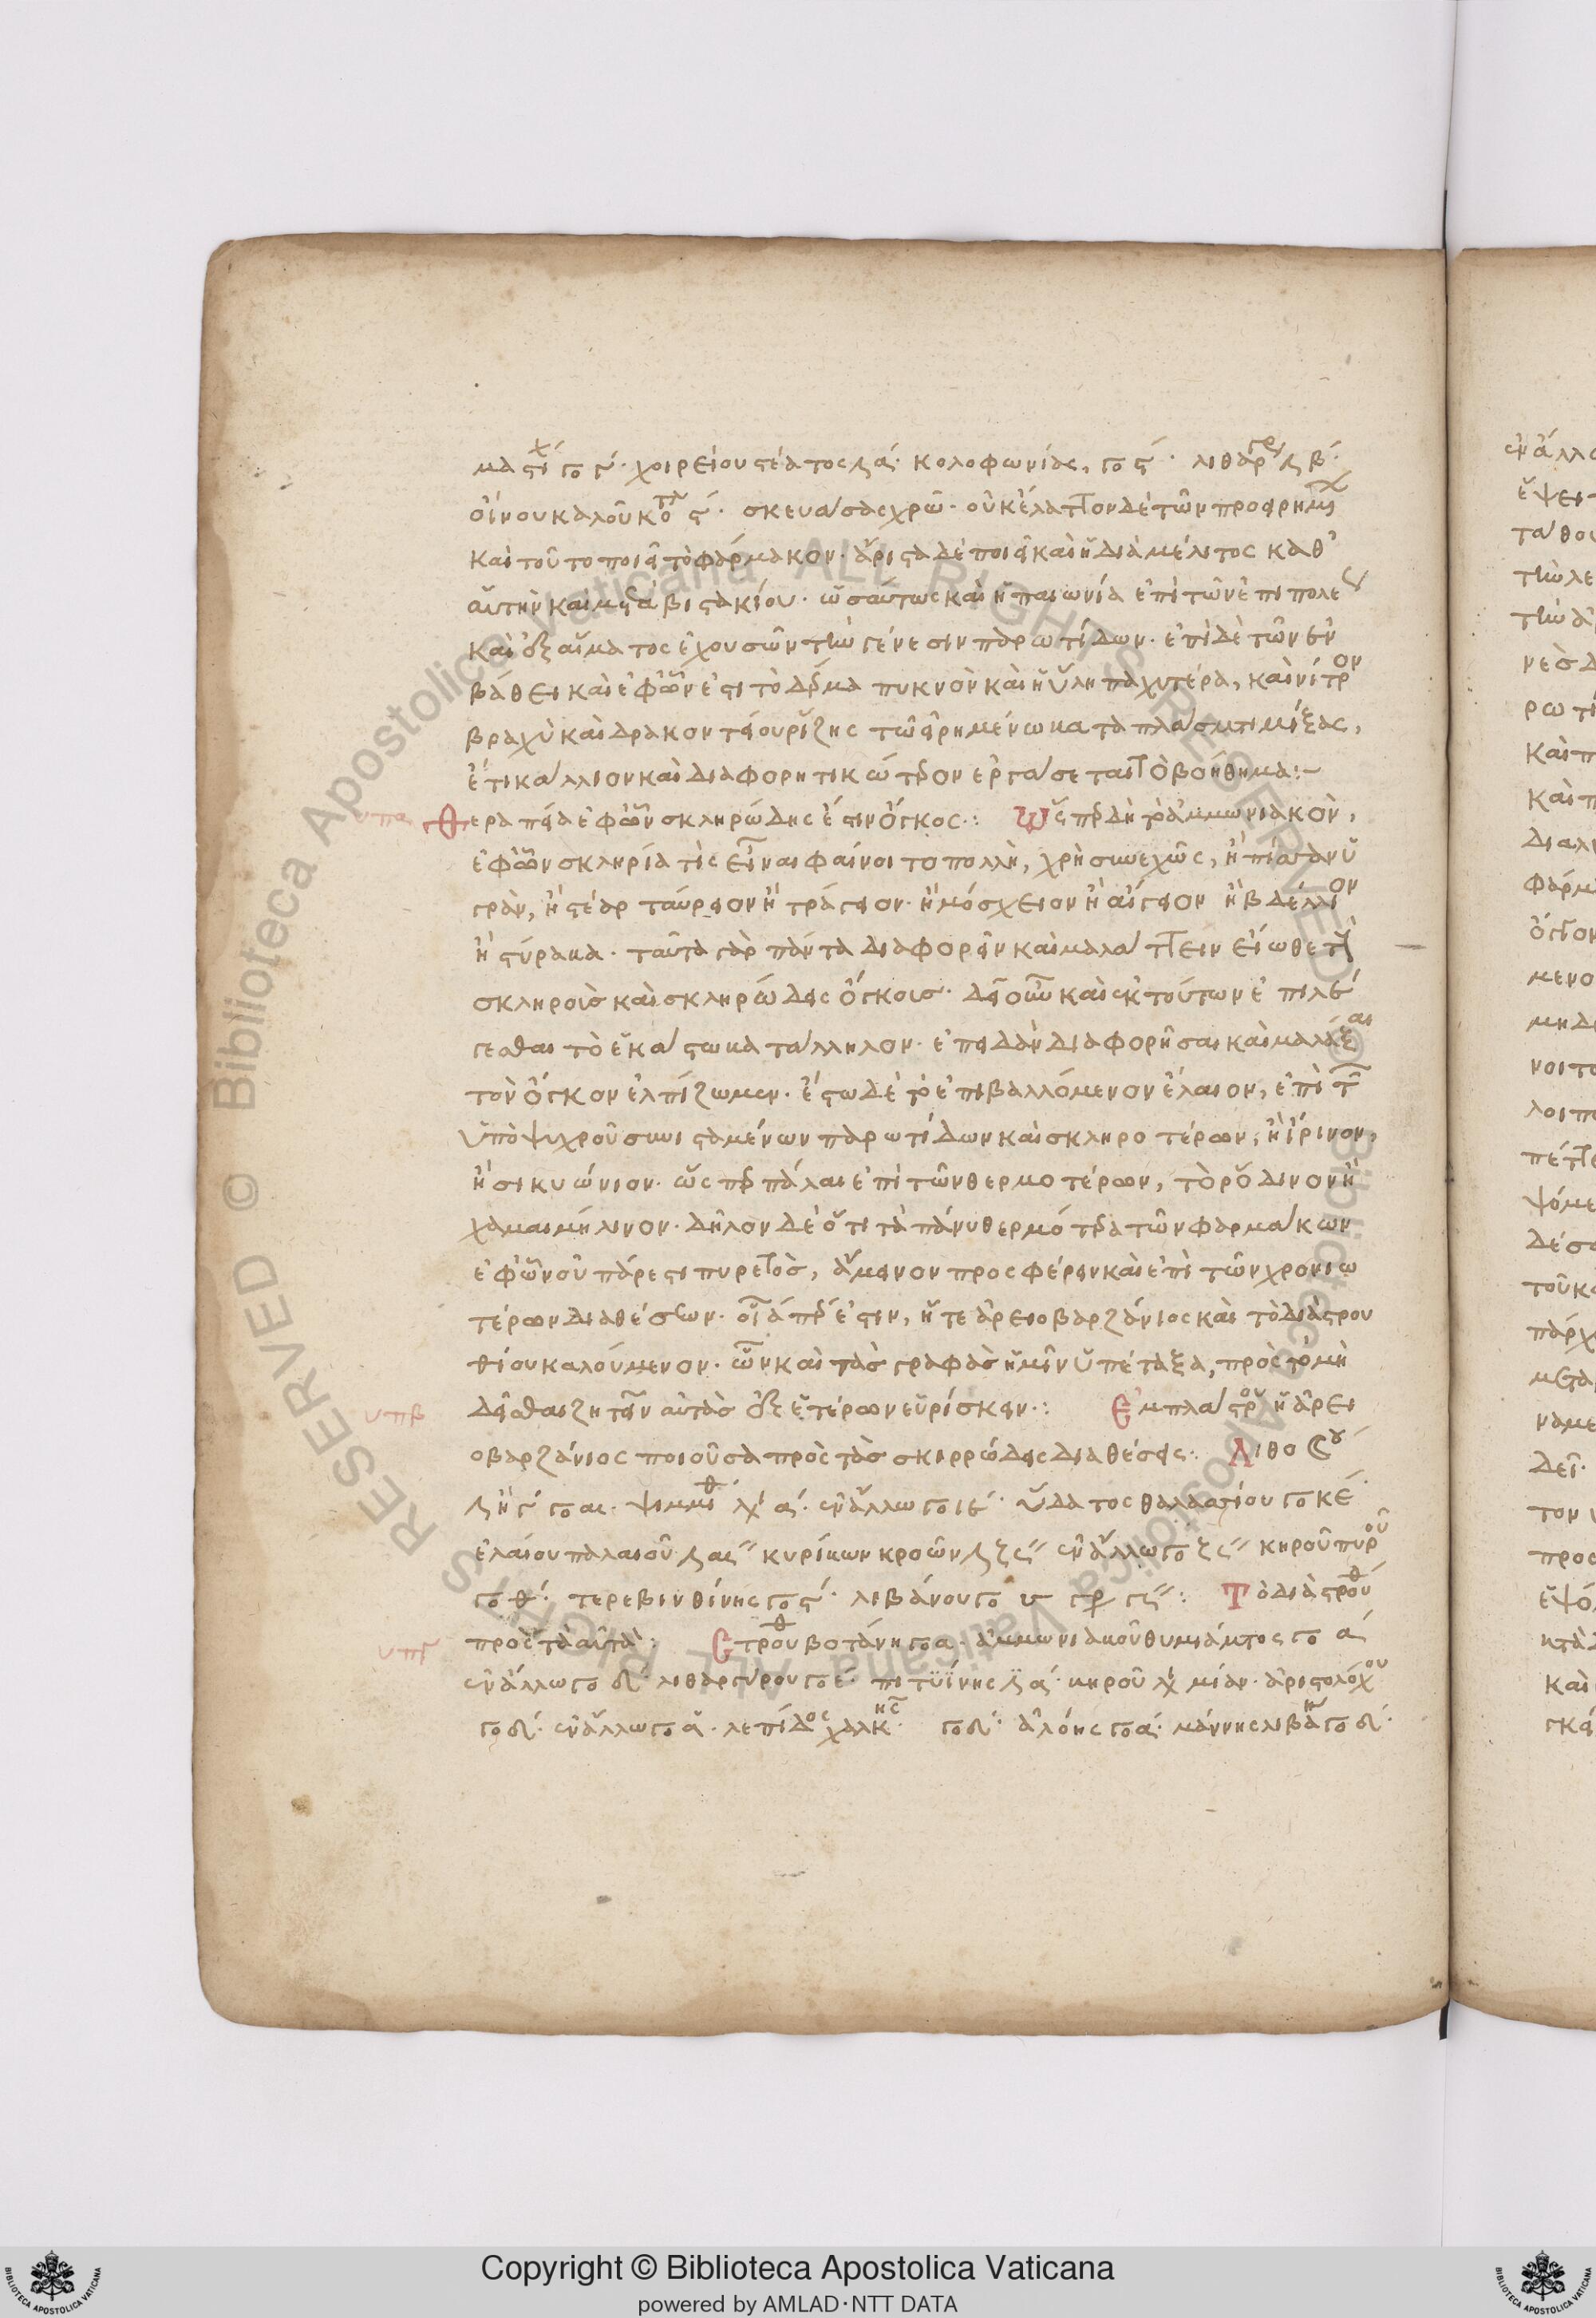 μαστίχ γο γ΄· χοιρείου στέατος λα΄· κολοφωνίας, γο ς΄· λιθαργ λβ΄·
οἴνου καλοῦ κοτλ ς΄· σκευάσας χρῶ· οὐκ ἔλαττον δὲ τῶν προειρημ
καὶ τοῦτο ποιεῖ τὸ φάρμακον· ἄριστα δὲ ποιεῖ καὶ ἡ διὰ μέλιτος καθ᾽
αὑτὴν καὶ μετὰ βιστακίου· ὡσαύτως καὶ ἡ παιωνία ἐπὶ τῶν ἐπιπολε
καὶ ἐξ αἵματος ἐχουσῶν τὴν γένεσιν παρωτίδων· ἐπὶ δὲ τῶν ἐν
βάθει καὶ ἐφ᾽ ὧν ἐστι τὸ δέρμα πυκνὸν καὶ ἡ ὕλη παχυτέρα, καὶ νίτρον
βραχὺ καὶ δρακοντείου ῥίζης τῷ εἰρημένῳ καταπλάσματι μίξας,
ἔτι κάλλιον καὶ διαφορητικώτερον ἐργάσεται τὸ βοήθημα:~
υπα Θεραπεία ἐφ᾽ ὧν σκληρώδης ἐστιν ὄγκος·: Ὥσπερ δὴ τὸ ἀμμωνιακὸν,
ἐφ᾽ ὧν σκληρία τις εἶναι φαίνοιτο πολλὴ, χρὴ συνεχῶς, ἢ πίσσαν ὑ
γρὰν, ἢ στέαρ ταύρειον ἢ τράγειον· ἢ μόσχειον ἢ αἴγειον ἢ βδέλλιον
ἢ στύρακα· ταῦτα γὰρ πάντα διαφορεῖν καὶ μαλάττειν εἴωθε τοῖς
σκληροῖς καὶ σκληρώδεις ὄγκοις· δεῖ οὖν καὶ ἐκ τούτων ἐπιλέ
γεσθαι τὸ ἑκάστῳ κατάλληλον· ἐπειδὰν διαφορῆσαι καὶ μαλάξαι
τὸν ὄγκον ἐλπίζωμεν· ἔστω δὲ τὸ ἐπιβαλλόμενον ἔλαιον, ἐπὶ τῶν
ὑπὸ ψυχροῦ συνισταμένων παρωτίδων καὶ σκληροτέρων, ἢ ἴρινον,
ἢ σικυώνιον· ὥσπερ πάλαι ἐπὶ τῶν θερμοτέρων, τὸ ῥόδινον ἢ
χαμαιμήλινον· δῆλον δὲ ὅτι τὰ πάνυ θερμότερα τῶν φαρμάκων
ἐφ᾽ ὧν οὐ πάρεστι πυρετὸς, ἄμεινον προσφέρειν καὶ ἐπὶ τῶν χρονιω
τέρων διαθέσεων· οἷά πέρ ἐστιν, ἥ τε ἀρειοβαρζάνιος καὶ τὸ διὰ στρου
θίου καλούμενον· ὧν καὶ τὰς γραφὰς ἡμῖν ὑπέταξα, πρὸς τὸ μὴ
υπβ δεῖσθαι ζητεῖν αὐτὰς ἐξ ἑτέρων εὑρίσκειν·: Ἔμπλαστρος ἡ ἀρει
οβαρζάνιος ποιοῦσα πρὸς τὰς σκιρρώδεις διαθέσεις·. Λιθ
ψιμμιθ λι α΄· ἐν ἄλλῳ γο ιε΄· ὕδατος θαλασσίου γο κε΄·
ἐλαίου παλαιοῦ λ κυρίνων κροῶν λ ἐν ἄλλῳ γο ζς΄΄ κηροῦ πυροῦ
γο θ΄· τερεβινθίνης γο ς΄· λιβάνου γο Τὸ διὰ στρουθ
υπγ πρὸς τὰ αὐτὰ: Στρουθ βοτάνης γο α· ἀμμωνιακοῦ θυμιάματος γο α΄
ἐν ἄλλῳ γο δ΄· λιθαργύρου γο ε΄· πιτυΐνης λ α΄· κηροῦ λι μίαν· ἀριστολόχου
γο δ΄· ἐν ἄλλῳ γο α΄· λεπίδος χαλκῆς· γο δ΄· ἀλόης γο α΄· μάννης λιβάν γο δ΄·
Copyright © Biblioteca Apostolica Vaticana
powered by AMLAD·NTT DATA